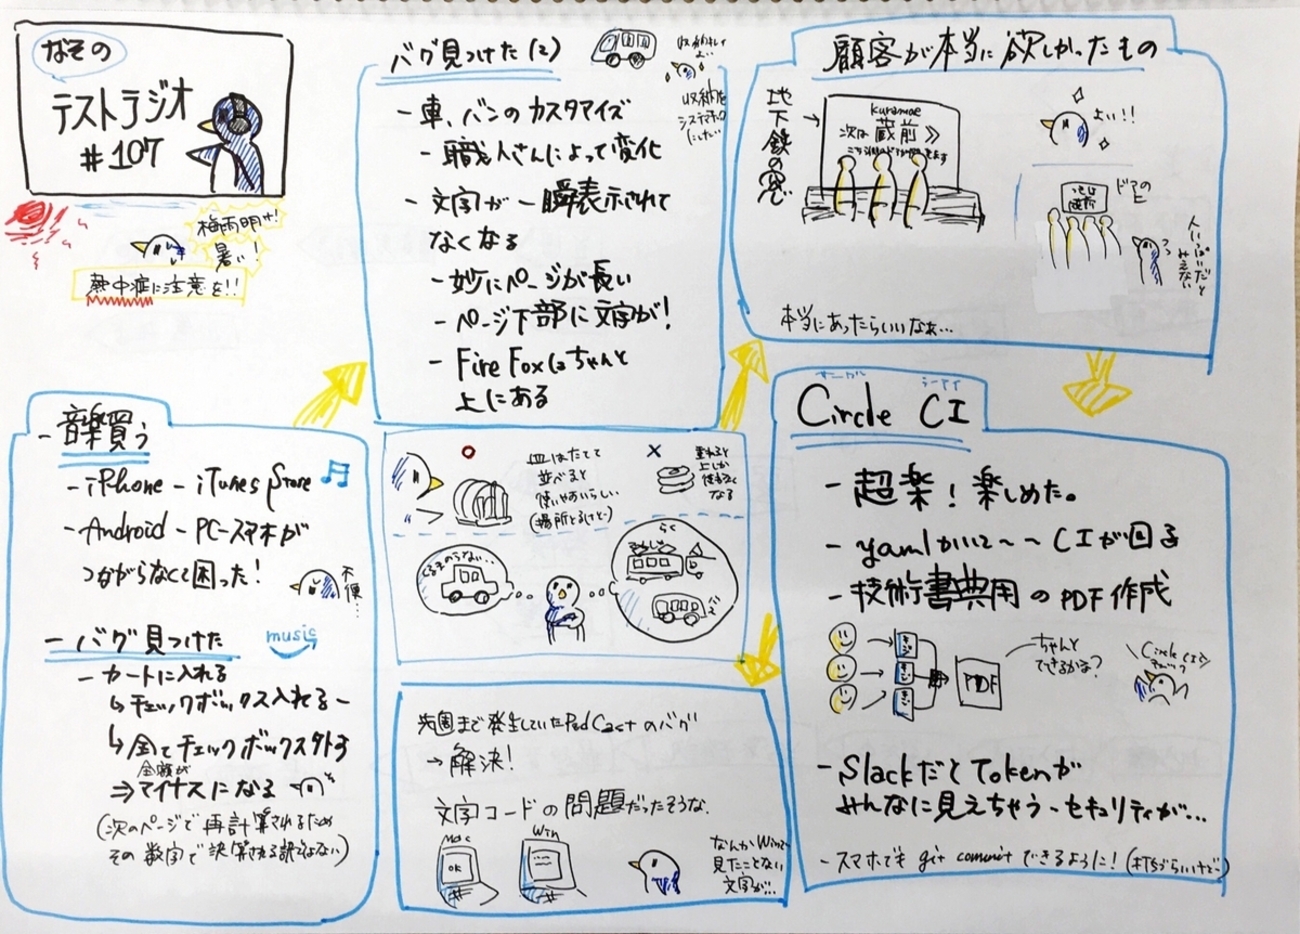 なぞの
テストラジオ
#107
梅雨明け!
暑い!
熱中症に注意を!!
- 音楽買う
- iPhone - iTunes Store
- Android - PCースマホが
つながらなくて困った!
不便…
- バグ見つけた
music
- カートに入れる
↳ チェックボックス入れる
↳ 全てチェックボックス外す
金額が
⇒ マイナスになる
(次のページで再計算されるため
その数字で決算される訳ではない)
バグ見つけた(2)
- 車、バンのカスタマイズ
- 職人さんによって変化
- 文字が一瞬表示されて
なくなる
- 妙にページが長い
- ページ下部に文字が!
- Fire Foxはちゃんと
上にある
収納を
システマチックに
皿はたてて
並べると
使いやすいらしい
(場所とるけどー)
重ねると
上しか
使わなく
なる
くるまのらない…
らく
でんしゃ
バス
先週まで発生していたPodCastのバグ
→ 解決!
文字コードの問題だったそうな.
Mac
OK
Win
なんかWinで
見たことない
文字が…
顧客が本当に欲しかったもの
地下鉄の窓
→
kuramae
次は 蔵前 》
よい!!
次は
蔵前
ドアの
上
人いっぱいだと
みえない
本当にあったらいいなぁ…
サークル シーアイ
Circle CI
- 超楽! 楽しめた。
- yamlかいて〜〜CIが回る
- 技術書典用のPDF作成
PDF
ちゃんと
できるかな?
Circle CIで
チェック
- SlackだとTokenが
みんなに見えちゃう - セキュリティが…
- スマホでも git commit できるように! (打ちづらいけどー)